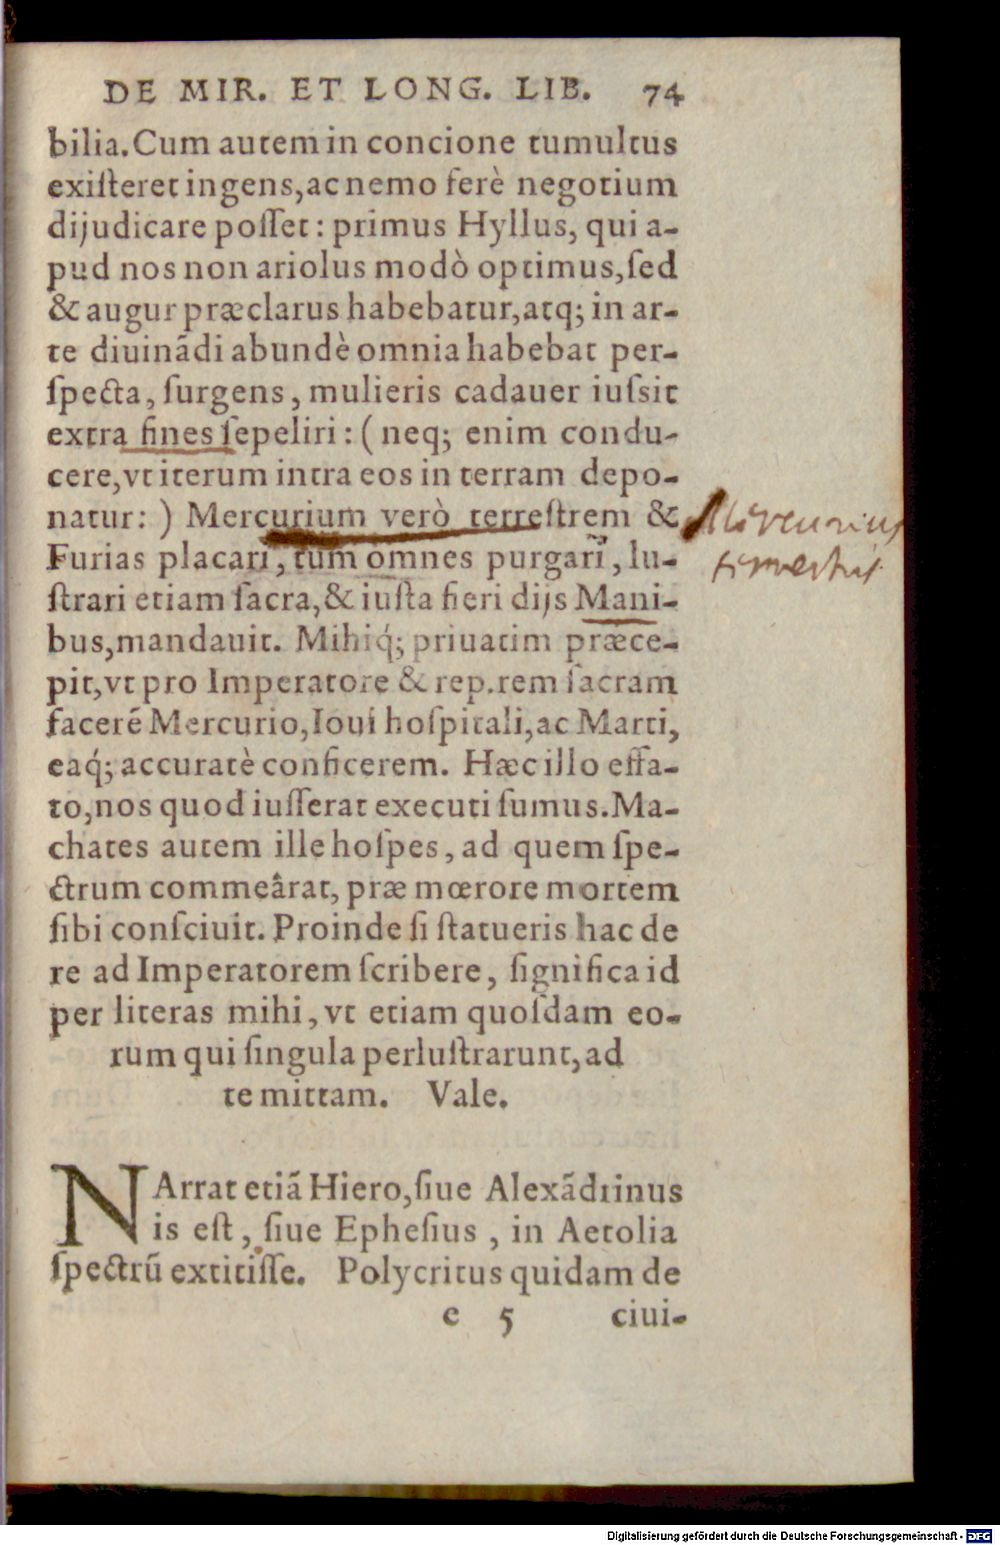 DE MIR. ET LONG. LIB. 74
bilia. Cum autem in concione tumultus
existeret ingens, ac nemo ferè negotium
dijudicare posset: primus Hyllus, qui a-
pud nos non ariolus modò optimus, sed
& augur præclarus habebatur, atq; in ar-
te diuinãdi abundè omnia habebat per-
specta, surgens, mulieris cadauer iussit
extra fines sepeliri: (neq; enim condu-
cere, vt iterum intra eos in terram depo-
natur:) Mercurium verò terrestrem &
Mercurius
Furias placari, tum omnes purgari, lu-
terrestris
strari etiam sacra, & iusta fieri dijs Mani-
bus, mandauit. Mihiq́; priuatim præce-
pit, vt pro Imperatore & rep. rem sacram
facerẽ Mercurio, Ioui hospitali, ac Marti,
eaq́; accuratè conficerem. Hæc illo effa-
to, nos quod iusserat executi sumus. Ma-
chates autem ille hospes, ad quem spe-
ctrum commeârat, præ mœrore mortem
sibi consciuit. Proinde si statueris hac de
re ad Imperatorem scribere, significa id
per literas mihi, vt etiam quosdam eo-
rum qui singula perlustrarunt, ad
te mittam. Vale.
NArrat etiã Hiero, siue Alexãdrinus
is est, siue Ephesius, in Aetolia
spectrũ extitisse. Polycritus quidam de
e 5 ciui-
Digitalisierung gefördert durch die Deutsche Forschungsgemeinschaft - DFG